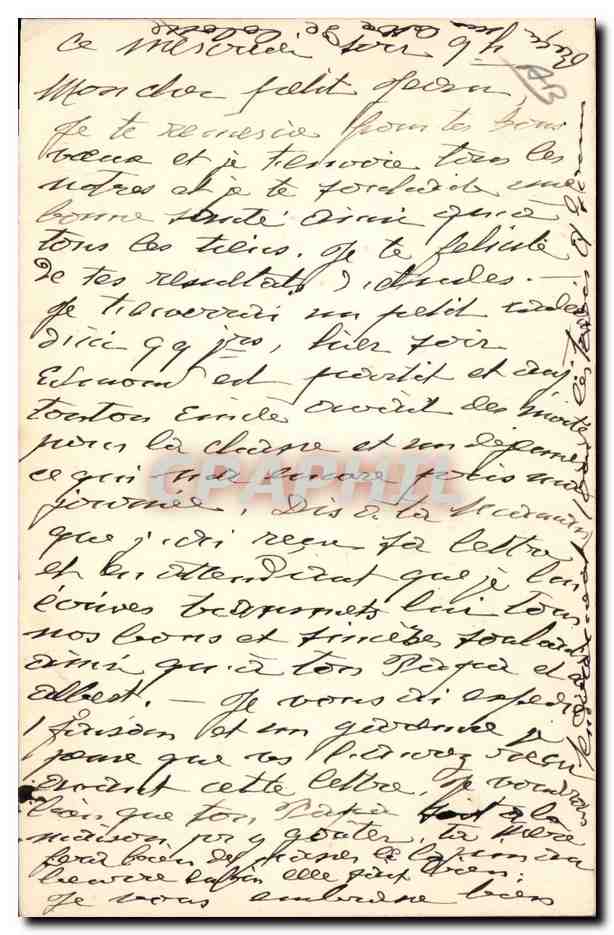 ce mercredi soir 9 h
AB
Mon cher petit Jean,
Je te remercie pour tes bons
vœux et je t'envoie tous les
notres et je te souhaite une
bonne santé ainsi qu'à
tous les tiens. Je te félicite
de tes resultats d'études. —
Je t'enverrai un petit
d'ici qq jrs, hier soir
Edmond est partit et auj
tonton Emile avait des invités
pour la chasse et un déjeuner
ce qui m'a encore pris ma
journée. Dis à ta Maman
que j'ai reçu sa lettre
et en attendant que je lui
écrives transmets lui tous
nos bons et sincères souhaits
ainsi qu'à ton Papa et
albert. — Je vous ai expédié
1 faisan et un je
pense que vs l'aurez reçu
avant cette lettre. Je voudrais
bien que ton Papa soit à la
maison pr y goûter, ta mère
fera bien de
beurre enfin elle fait bien.
Je vous embrasse bien
CPAPHIL